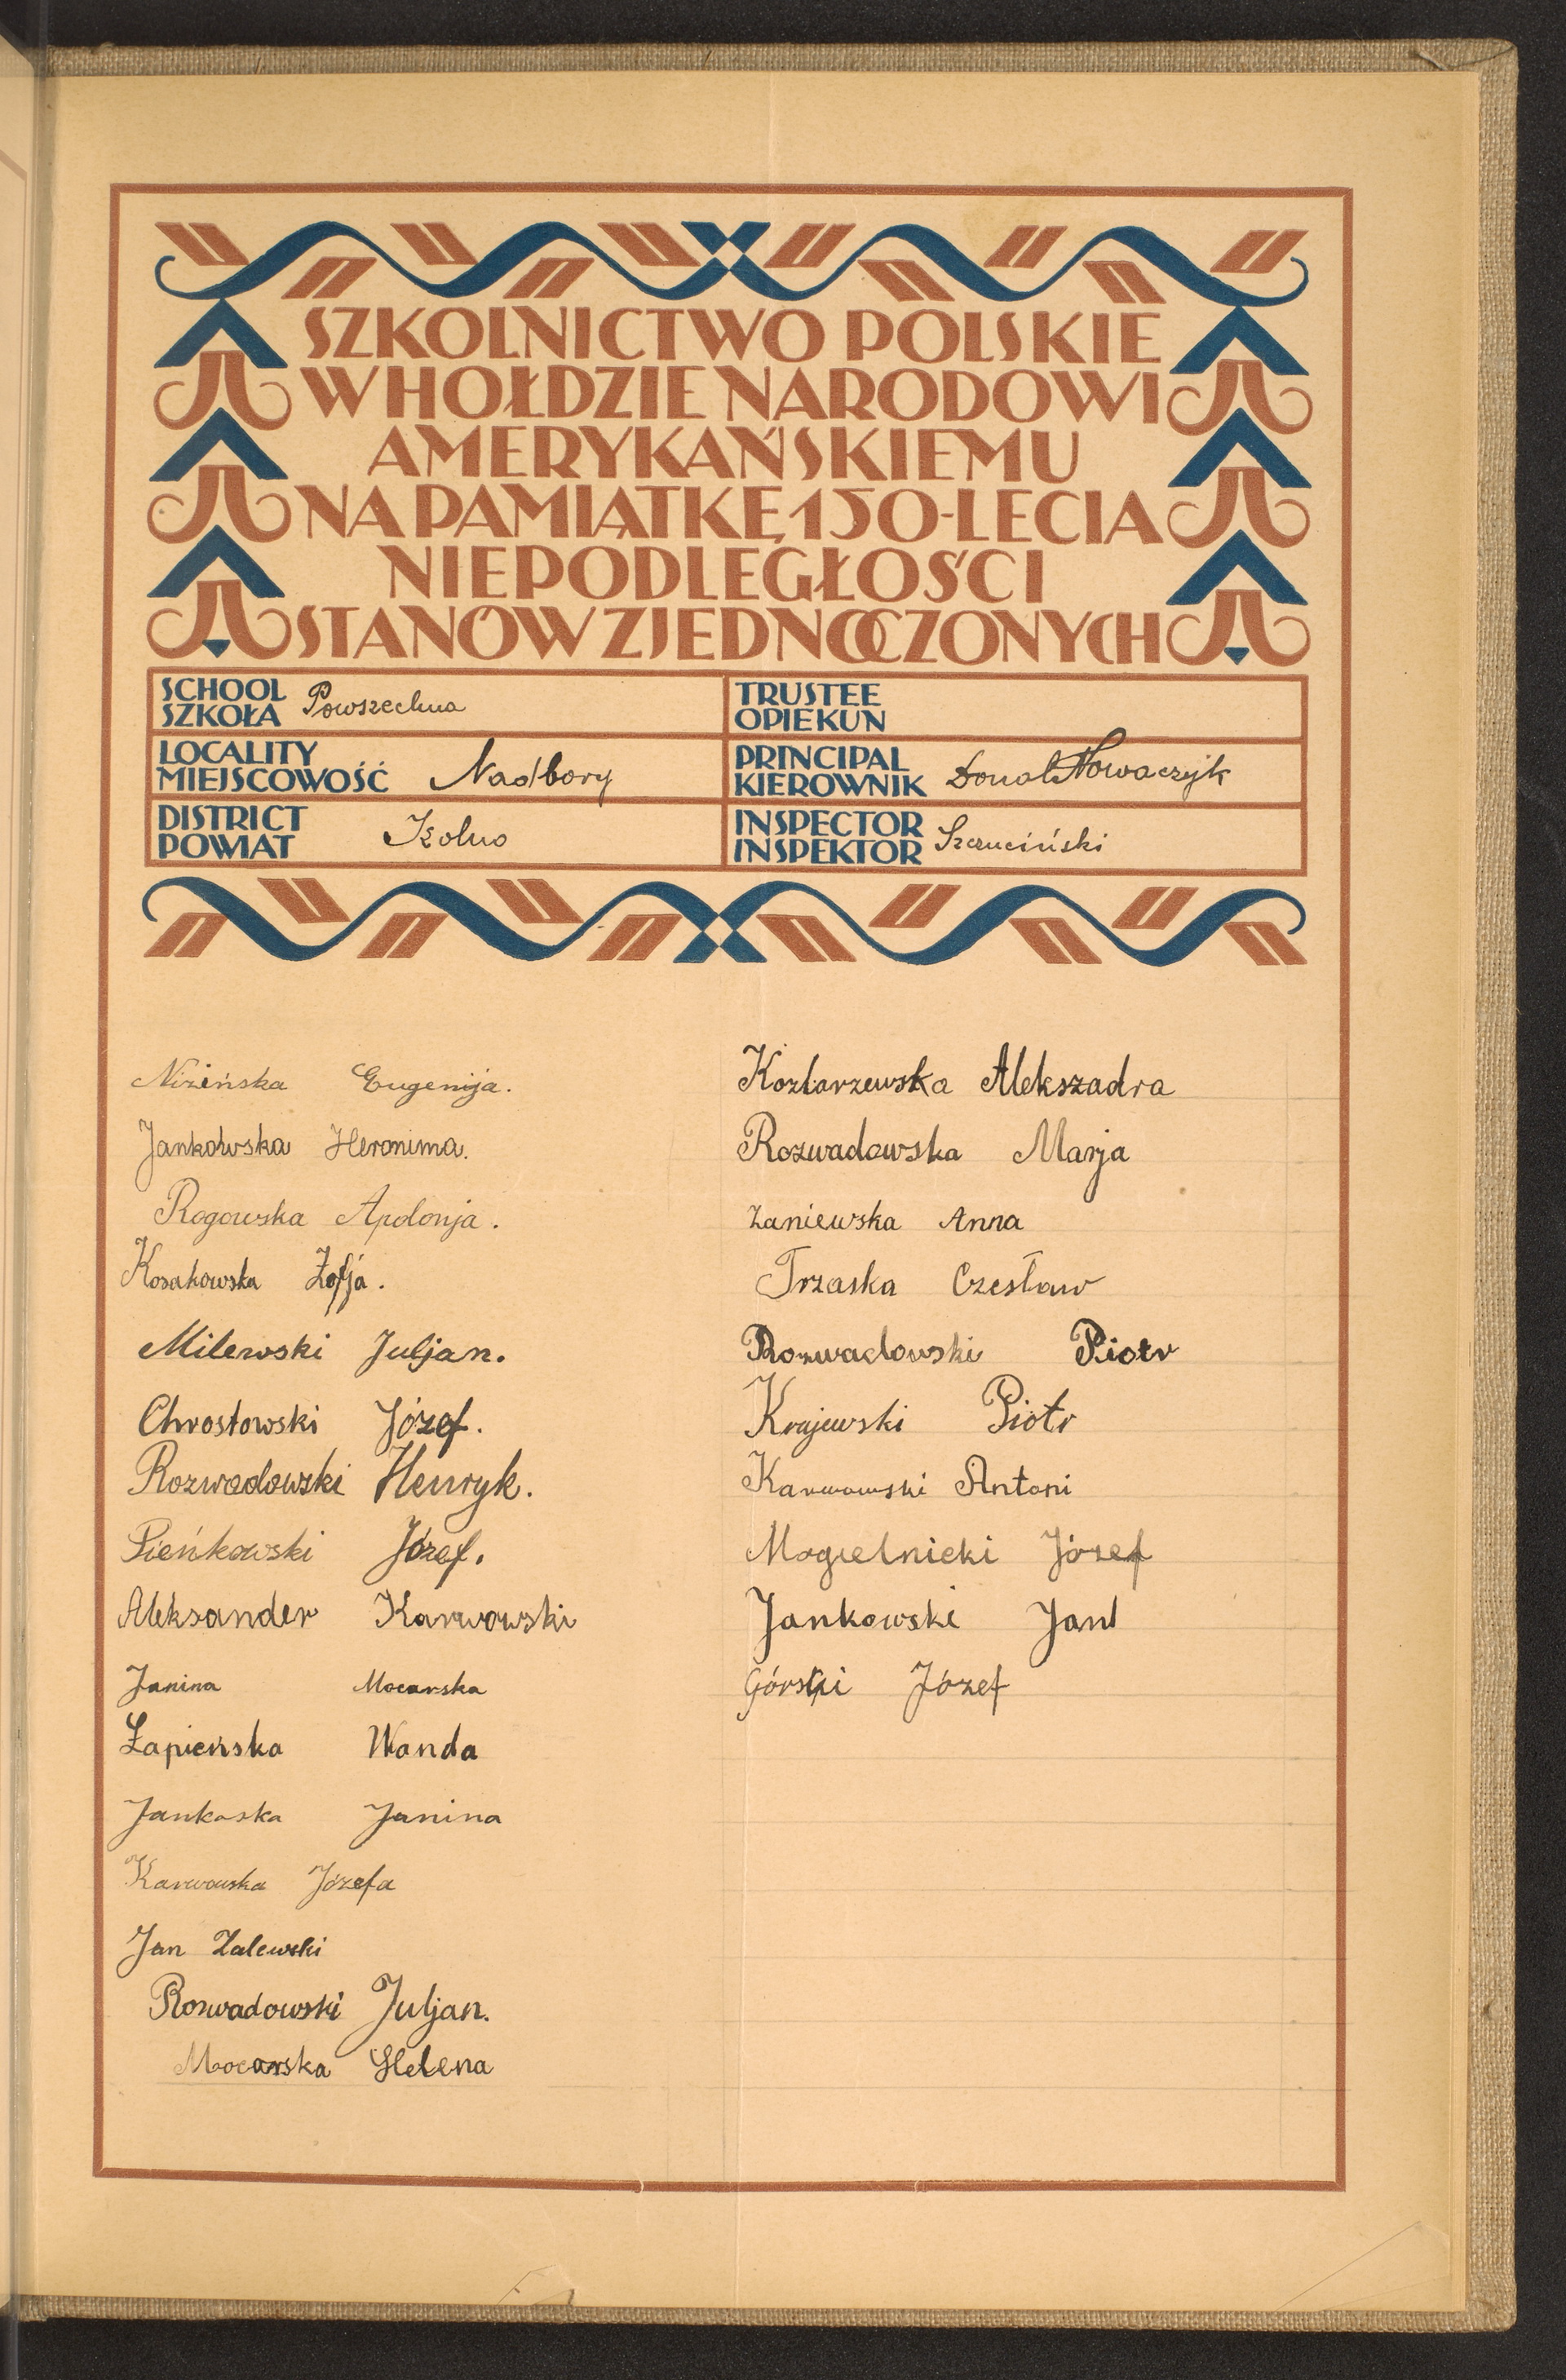 SZKOLNICTWO POLSKIE
W HOŁDZIE NARODOWI
AMERYKAŃSKIEMU
NA PAMIĄTKĘ 150-LECIA
NIEPODLEGŁOŚCI
STANÓW ZJEDNOCZONYCH
SCHOOL
SZKOŁA Powszechna
LOCALITY
MIEJSCOWOŚĆ Nadbory
DISTRICT
POWIAT Kolno
TRUSTEE
OPIEKUN
PRINCIPAL
KIEROWNIK Donat Nowaczyk
INSPECTOR
INSPEKTOR Szczuciński
Nizińska Eugenija.
Jankowska Heronima.
Rogowska Apolonja.
Kosakowska Zofja.
Milewski Juljan.
Chrostowski Józef.
Rozwadowski Henryk.
Pieńkowski Józef.
Aleksander Karwowski
Janina Mocarska
Łapieńska Wanda
Jankoska Janina
Karwowska Józefa
Jan Zalewski
Rozwadowski Juljan.
Mocarska Helena
Kozłarzewska Alekszadra
Rozwadowska Marja
Zaniewska Anna
Trzaska Czesław
Rozwadowski Piotr
Krajewski Piotr
Karwowski Antoni
Mogielnicki Józef
Jankowski Jan
Górski Józef